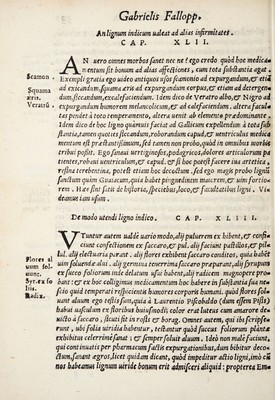 Gabrielis Fallopp.
An lignum indicum ualeat ad alias infirmitates.
CAP. XLII.
AN uero omnes morbos sanet nec ne? ego credo quòd hoc medica
mentum sit bonum ad alias affectiones, cum tota substantia agat.
Scamon. Exempli gratia ego uideo antiquos usos scamonio ad expurgandum, et
Squama æris. ad exiccandum, squama æris ad expurgandum corpus, et etiam ad detergen
dum, siccandum, excalefaciendum. Idem dico de Veratro albo, et Nigro ad
Veratrū. expurgandum humorem melancolicum, et ad calefaciendum. altera facul
tas pendet à toto temperamento, altera uenit ab elemento prædominante.
Idem dico de hoc ligno quamuis sanet ad Gallicum expellendum à tota sub-
stantia, tamen quoties siccandum, roborandum caput, et uentriculus medica
mentum est præstantissimum, sed tamen non probo, quòd in omnibus morbis
tribui possit. Ego sanaui uertiginosos, podagricos, dolores articulorum pa
tientes, roboraui uentriculum, et caput.
resina terebentina, potest etiam hoc decoctum. sed ego magis probo lignū
sanctum quàm Guaiacum, quia habet pinguedinem maiorem, et uim fortio-
rem. Hæc sint satis de historia, speciebus, loco, et facultatibus ligni. Vi-
deamus iam usum.
De modo utendi ligno indico. CAP. XLIII.
VTuntur autem aut de uario modo, alij puluerem ex bibent, et consti-
tuunt confectionem ex saccaro, et pul. alij faciunt pastillos, et pi-
lul. alij electuaria parant. alij flores exhibent saccaro conditos, quia habēt
Flores al uum soluendi alui. alij gemmas teneriores saccaro præparant, alij syrupum
uunt. ex succo foliorum inde delatum usui habent, alij radicem magnopere pro
Syr. ex fo liis. bant: et ex hoc colligimus medicamentum hoc habere in substantia sua ne-
Radix. scio quid temperati respicientis humores corporis humani. quòd flores sol-
uant aluum ego testis sum, quia à Laurentio
habui uasculum ex floribus huiusmodi: color erat luteus cum amarore de-
uicto à saccaro, sicuti sit in rosis, et borag. Omnes autem, qui ibi scripse-
runt, ubi folia uiridia habentur, testantur quòd succus foliorum plantæ
exhibitus celerrimè sanat, et semper soluit aluum. Ideò non malè faciunt,
qui constituunt per pharmacum facta expurgationibus, dum bibitur decoc-
tum, sanant ægros, licet quidam dicant, quòd impeditur actio ligni, imò cū
nos habeamus lignum uiride bonum erit admisceri aliquid: propterea Em